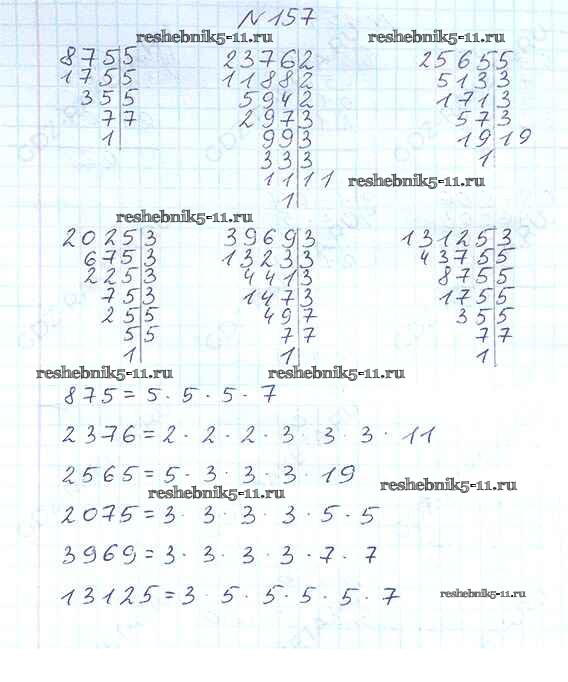 №157
reshebnik5-11.ru reshebnik5-11.ru
875|5 2376|2 2565|5
175|5 1188|2 513|3
35|5 594|2 171|3
7|7 297|3 57|3
1| 99|3 19|19
33|3 1|
11|11 reshebnik5-11.ru
1|
reshebnik5-11.ru
2025|3 3969|3 13125|3
675|3 1323|3 4375|5
225|3 441|3 875|5
75|3 147|3 175|5
25|5 49|7 35|5
5|5 7|7 7|7
1| 1| 1|
reshebnik5-11.ru reshebnik5-11.ru
875=5·5·5·7
2376=2·2·2·3·3·3·11
2565=5·3·3·3·19
reshebnik5-11.ru reshebnik5-11.ru
2075=3·3·3·3·5·5
3969=3·3·3·3·7·7
13125=3·5·5·5·5·7
reshebnik5-11.ru